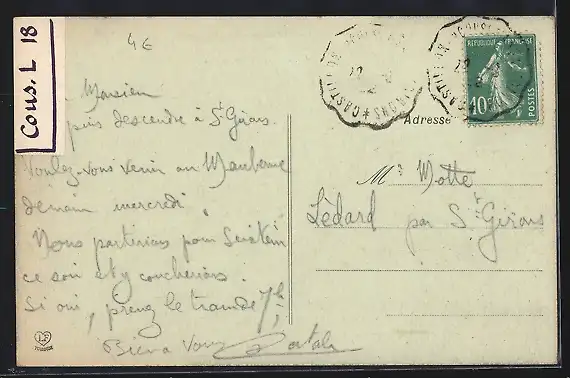 Cous. L 18
4€
Monsieur
puis descendre à St Girons.
Voulez-vous venir au Mauberme
demain mercredi.
Nous partirions pour Sentein
ce soir et y coucherions.
Si oui, prenez le train de 7h,
Bien à vous
RÉPUBLIQUE FRANÇAISE
10c
POSTES
Adresse
Mr Motte
Lédard par St Girons
LF
TOULOUSE